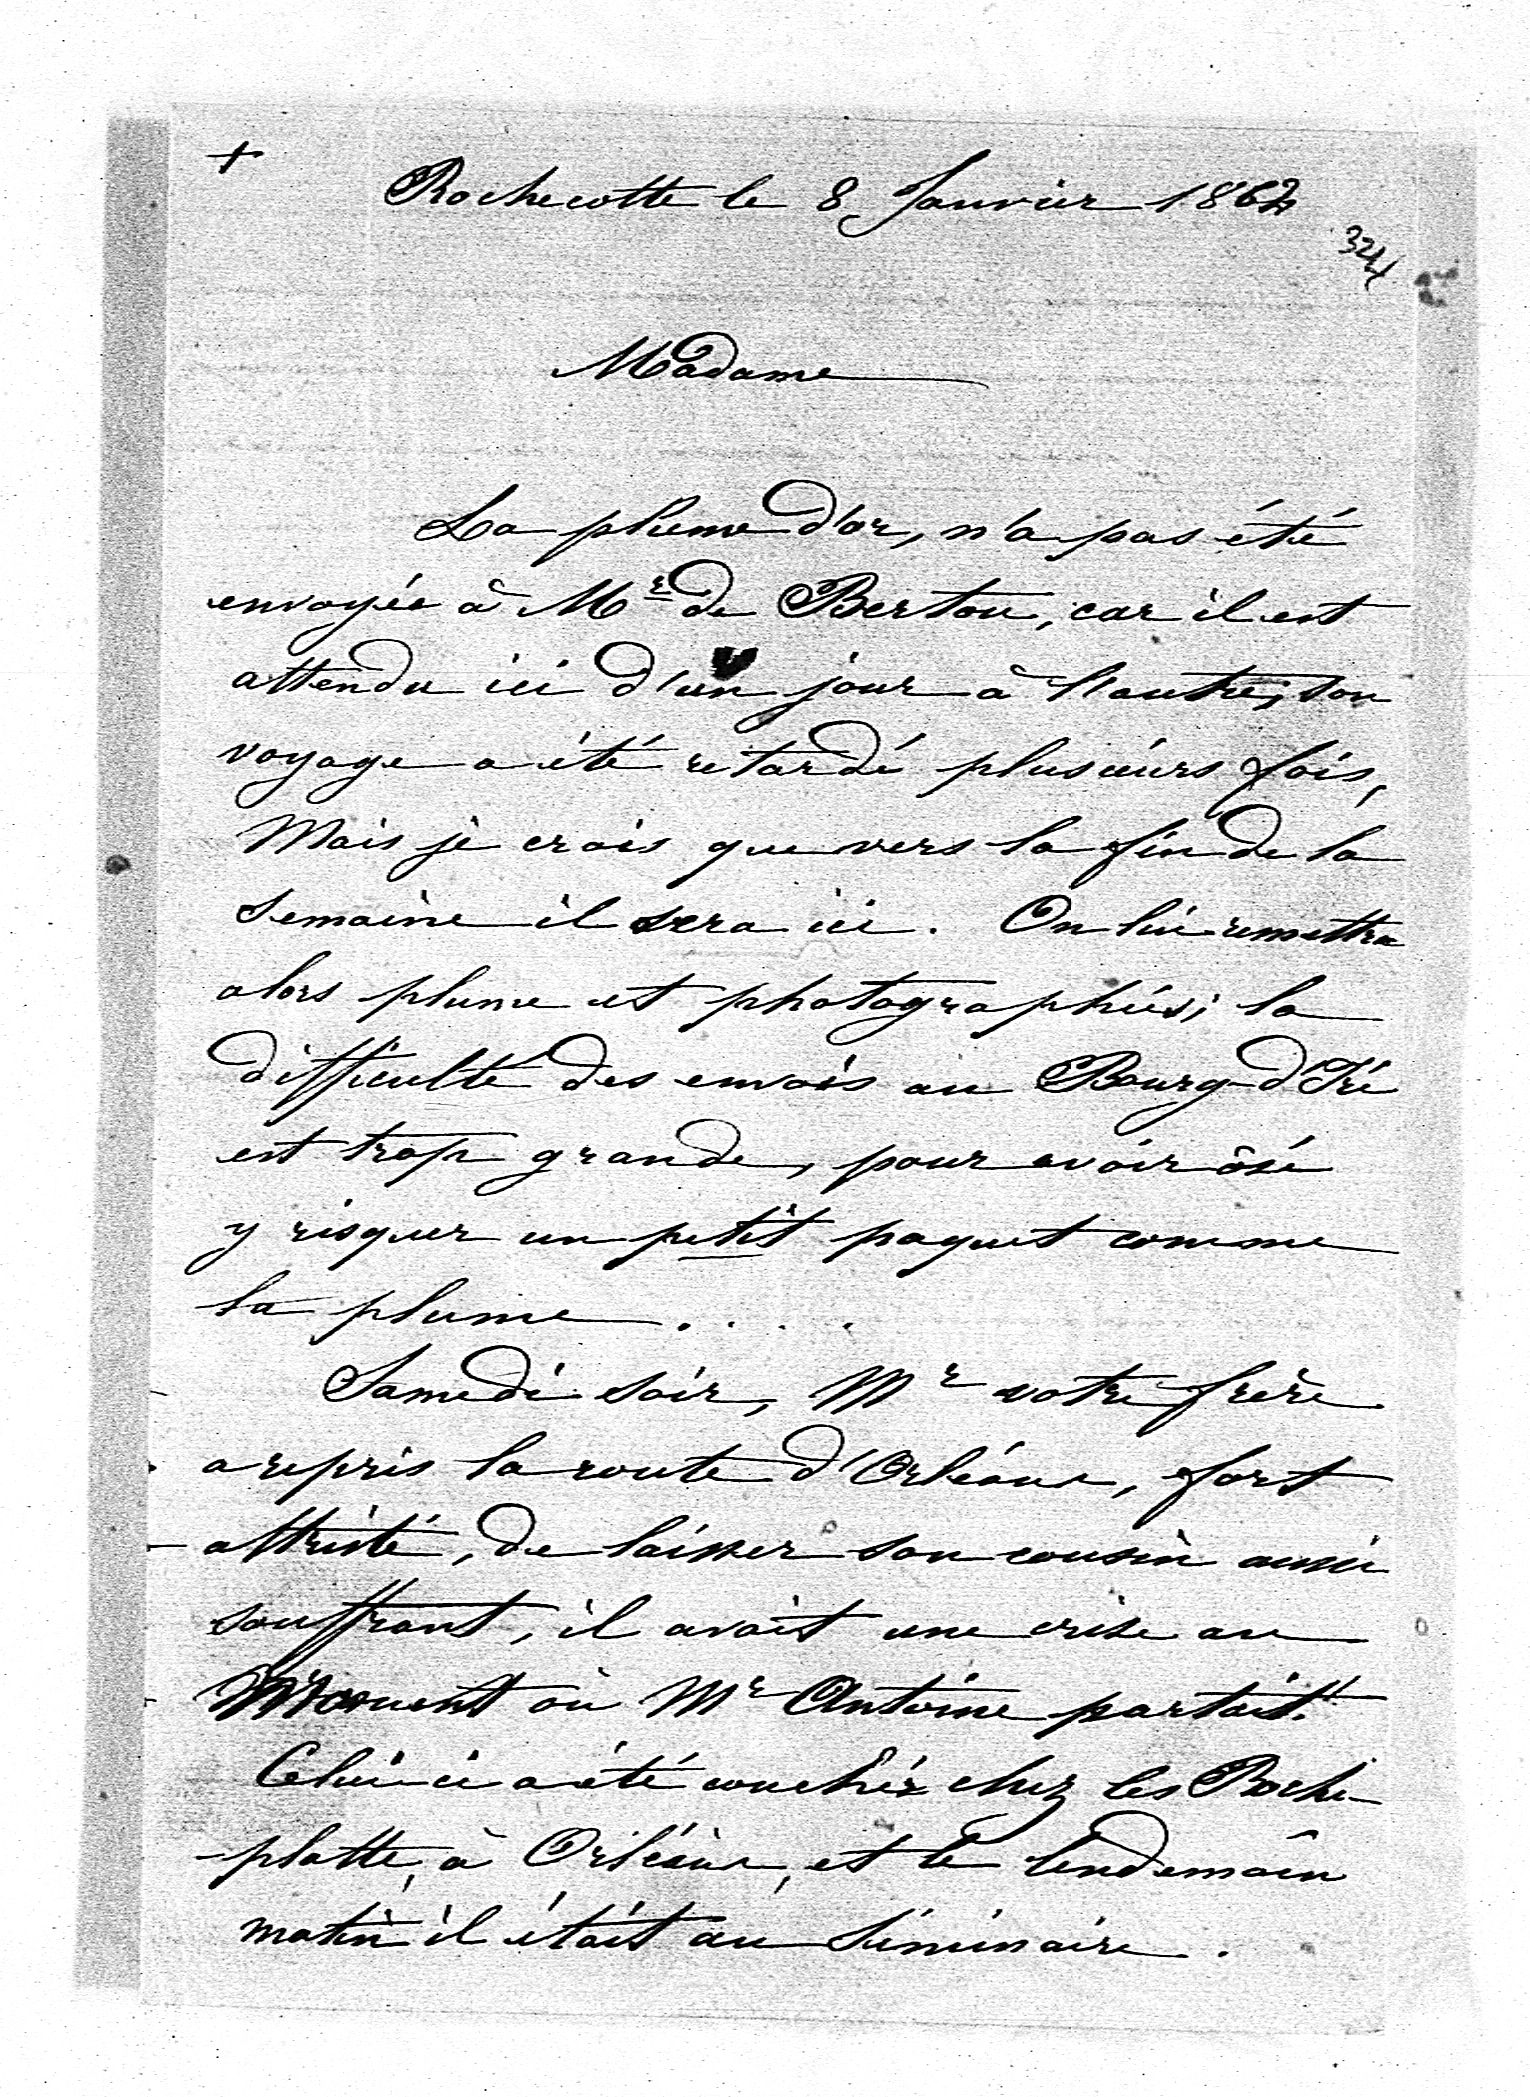 +
Rochecotte le 8 Janvier 1862
324
Madame
La plume d'or, n'a pas été
envoyée à Mr de Bertou, car il est
attendu ici d'un jour à l'autre; son
voyage a été retardé plusieurs fois,
Mais je crois que vers la fin de la
semaine il sera ici. On lui remettra
alors plume et photographies; la
difficulté des envois au Bourg-d'Iré
est trop grande, pour avoir ôsé
y risquer un petit paquet comme
la plume . . . .
Samedi soir, Mr votre frère
a repris la route d'Orléans, fort
attristé, de laisser son cousin aussi
souffrant, il avait une crise au
Moment où Mr Antoine partait.
Celui-ci a été coucher chez les Roche-
-platte, à Orléans, et le lendemain
matin il était au Séminaire.